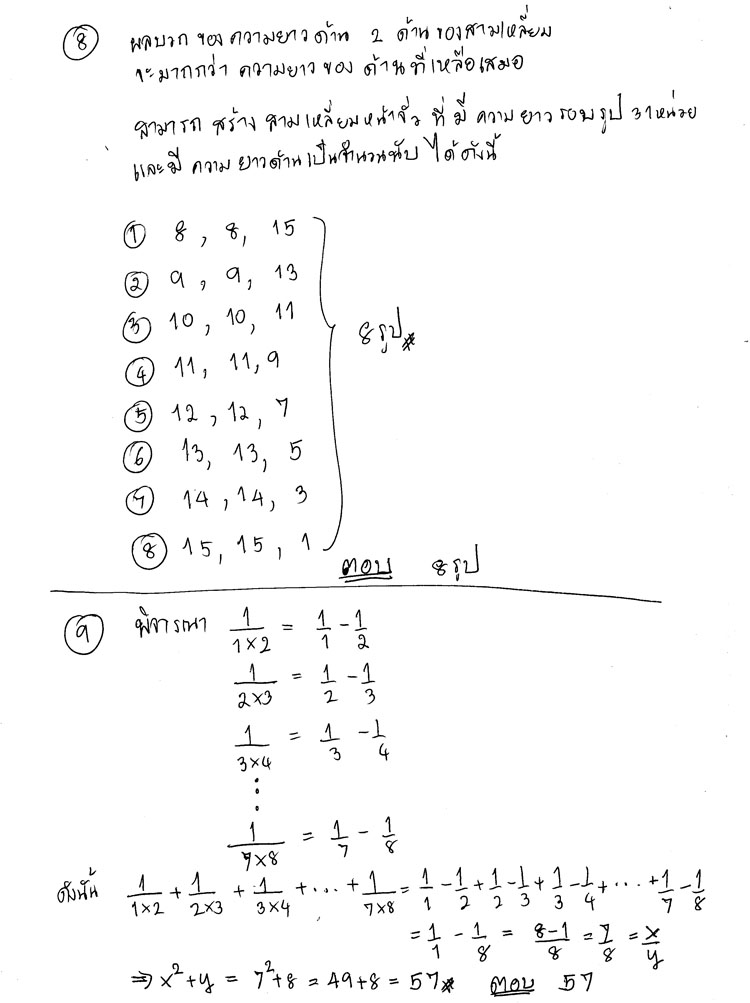 ⑧ ผลบวกของความยาวด้าน 2 ด้านของสามเหลี่ยม
จะมากกว่าความยาวของด้านที่เหลือเสมอ
สามารถสร้างสามเหลี่ยมหน้าจั่วที่มีความยาวรอบรูป 31 หน่วย
และมีความยาวด้านเป็นจำนวนนับได้ดังนี้
① 8, 8, 15
② 9, 9, 13
③ 10, 10, 11
8 รูป*
④ 11, 11, 9
⑤ 12, 12, 7
⑥ 13, 13, 5
⑦ 14, 14, 3
⑧ 15, 15, 1
ตอบ 8 รูป
⑨ พิจารณา 1/(1×2) = 1/1 - 1/2
1/(2×3) = 1/2 - 1/3
1/(3×4) = 1/3 - 1/4
⋮
1/(7×8) = 1/7 - 1/8
ดังนั้น 1/(1×2) + 1/(2×3) + 1/(3×4) + ... + 1/(7×8) = 1/1 - 1/2 + 1/2 - 1/3 + 1/3 - 1/4 + ... + 1/7 - 1/8
= 1/1 - 1/8 = (8-1)/8 = 7/8 = x/y
⇒ x² + y = 7² + 8 = 49 + 8 = 57* ตอบ 57